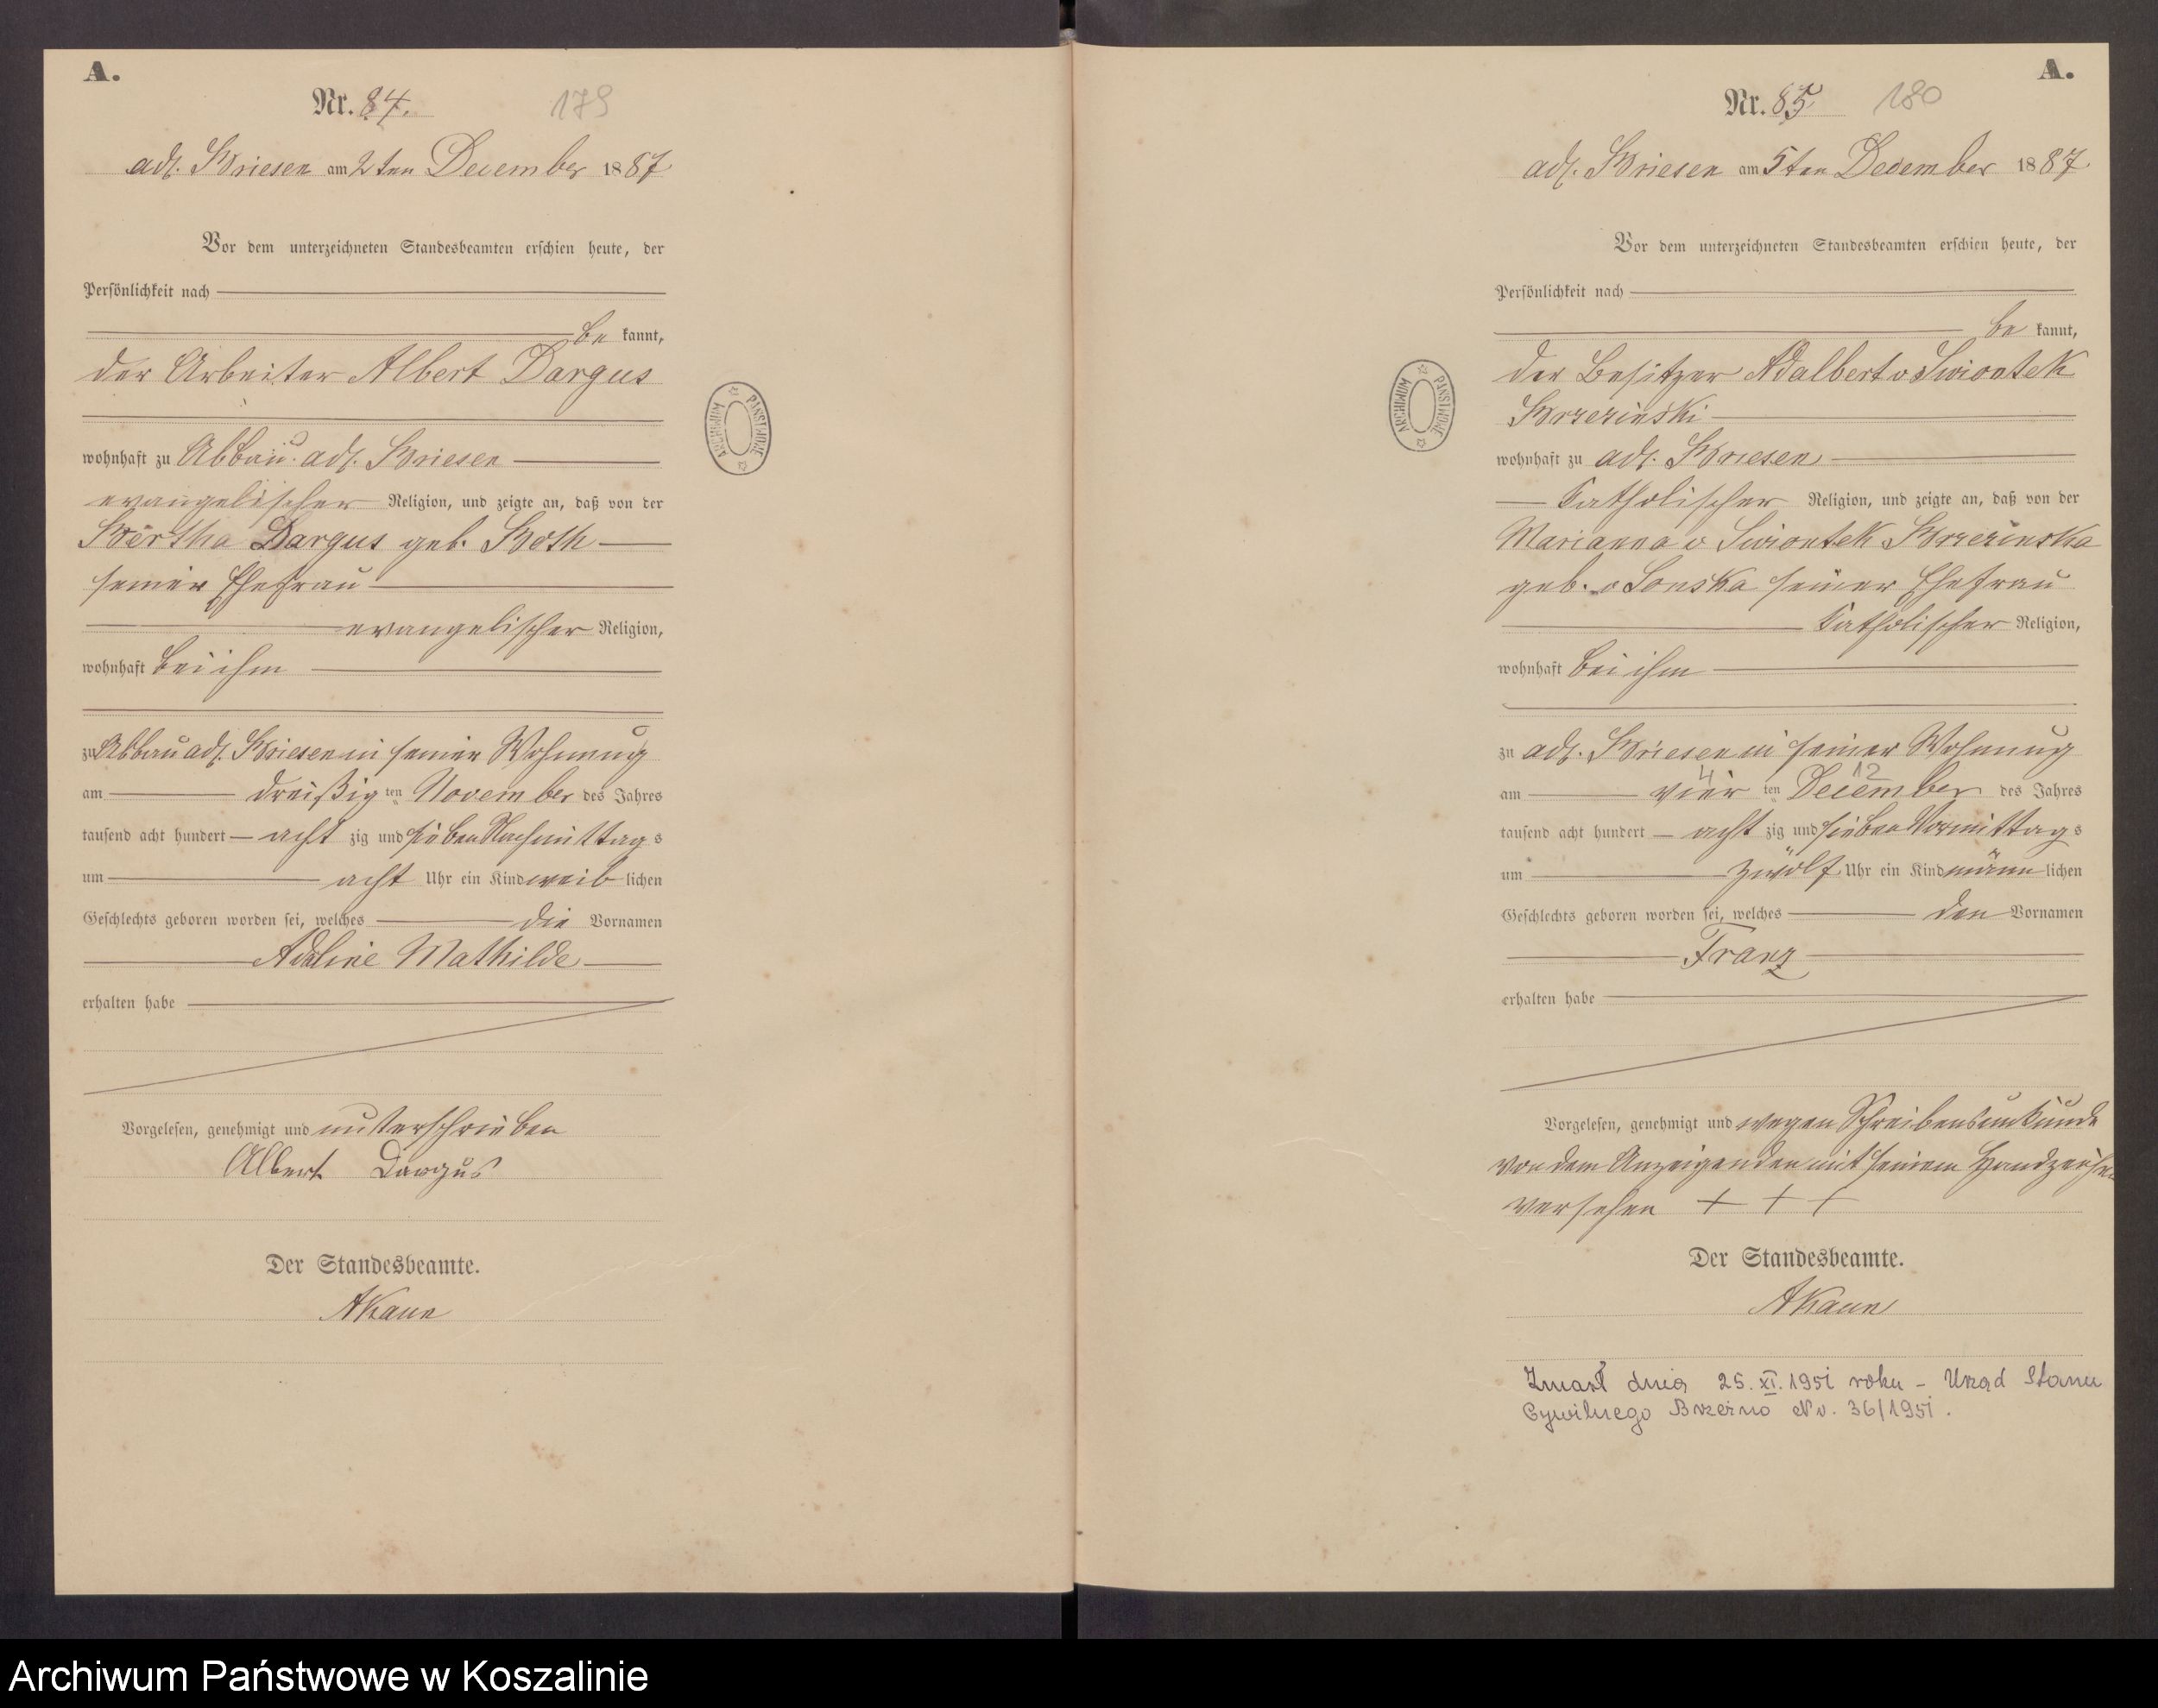 A.
Nr. 84. 179
adl. Briesen am 2ten December 1887
Vor dem unterzeichneten Standesbeamten erschien heute, der
Persönlichkeit nach
be kannt,
der Arbeiter Albert Dargus
wohnhaft zu Abbau adl. Briesen
evangelischer Religion, und zeigte an, daß von der
Bertha Dargus geb. Both
seiner Ehefrau
evangelischer Religion,
wohnhaft bei ihm
zu Abbau adl. Briesen in seiner Wohnung
am dreißig ten November des Jahres
tausend acht hundert acht zig und sieben Nachmittag s
um acht Uhr ein Kind weib lichen
Geschlechts geboren worden sei, welches die Vornamen
Adeline Mathilde
erhalten habe
Vorgelesen, genehmigt und unterschrieben
Albert Dargus
Der Standesbeamte.
AKaun
ARCHIWUM PAŃSTWOWE
A.
Nr. 85 180
adl. Briesen am 5ten December 1887
Vor dem unterzeichneten Standesbeamten erschien heute, der
Persönlichkeit nach
be kannt,
der Besitzer Adalbert v Swiontek
Brzezinski
wohnhaft zu adl. Briesen
katholischer Religion, und zeigte an, daß von der
Marianna v Swiontek Brzezinska
geb. v Lonska seiner Ehefrau
katholischer Religion,
wohnhaft bei ihm
zu adl. Briesen in seiner Wohnung
4 12
am vier ten December des Jahres
tausend acht hundert acht zig und sieben Vormittag s
um zwölf Uhr ein Kind männ lichen
Geschlechts geboren worden sei, welches den Vornamen
Franz
erhalten habe
Vorgelesen, genehmigt und wegen Schreibensunkunde
von dem Anzeigenden mit seinem Handzeichen
versehen + + +
Der Standesbeamte.
AKaun
Zmarł dnia 25.XI.1951 roku – Urząd Stanu
Cywilnego Brzeźno Nr. 36/1951.
ARCHIWUM PAŃSTWOWE
Archiwum Państwowe w Koszalinie